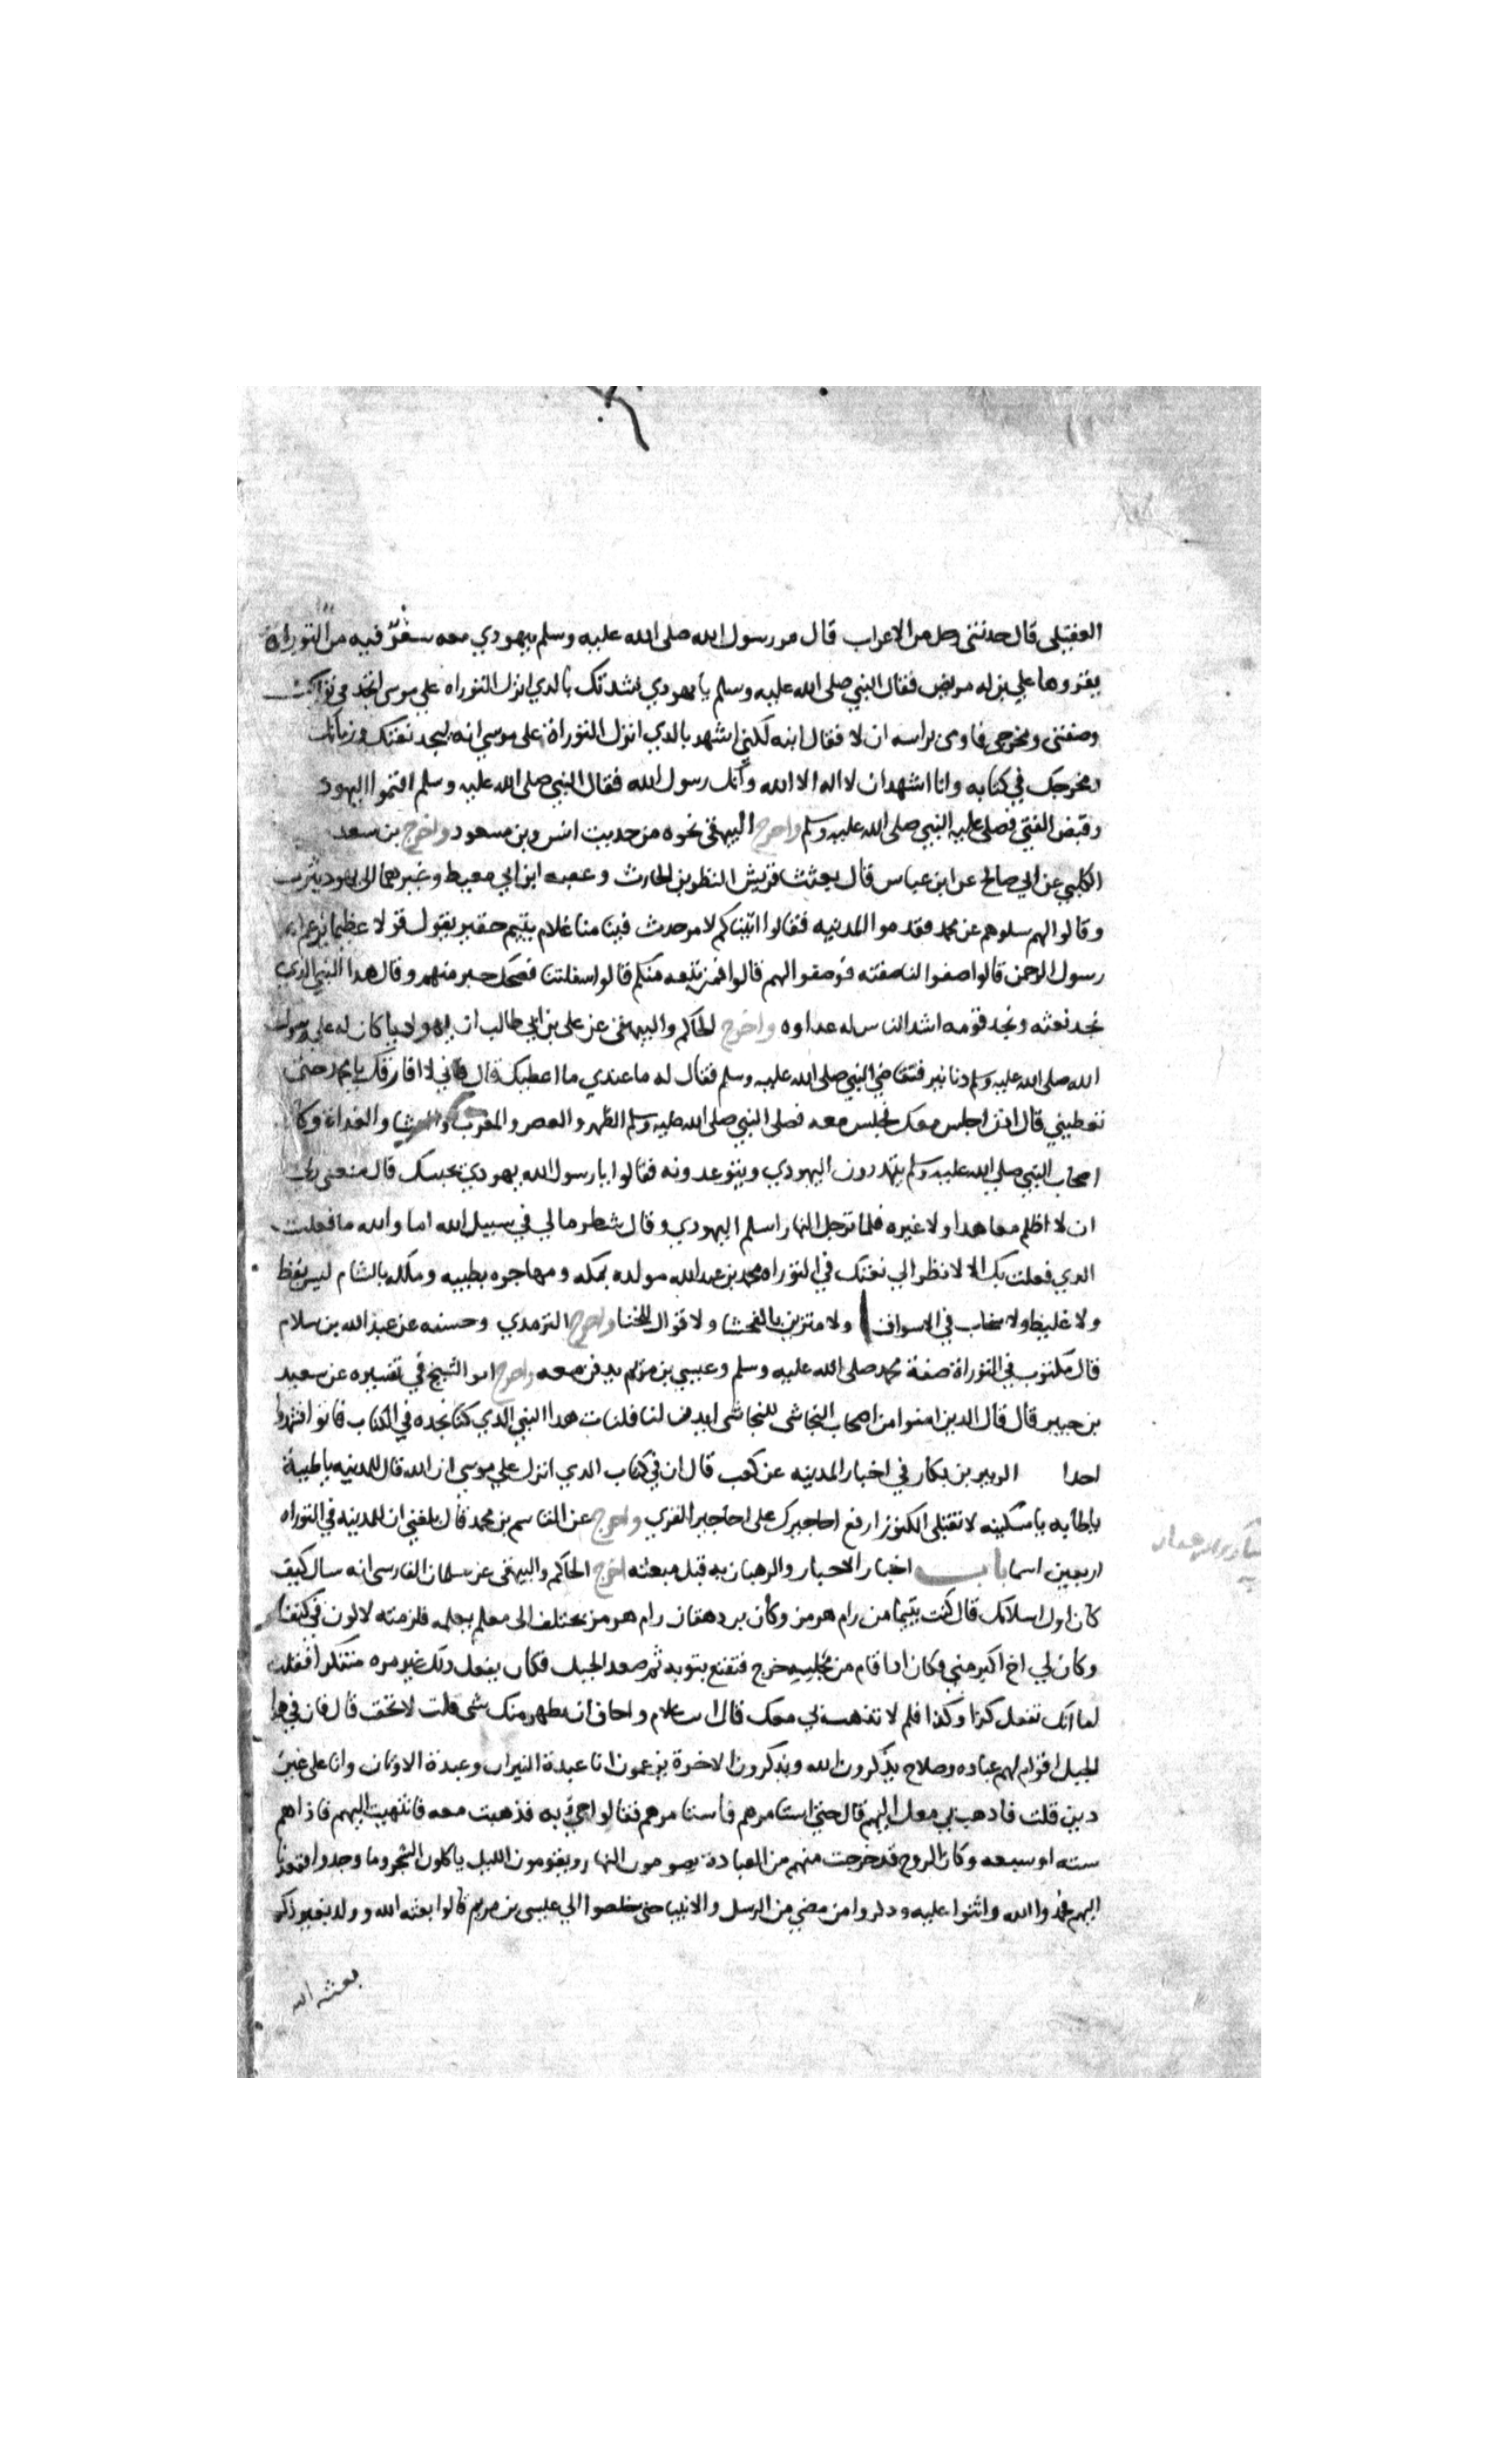 العقيلى قال حدثنى رجل من الاعراب قال مر رسول الله صلى الله عليه وسلم بيهودي معه سفر فيه من التوراة
يقروها علي بن له مريض فقال النبي صلى الله عليه وسلم يا يهودي نشدتك بالدي انزل التوراه علي موسى اتجد في توراتك
وصفتى ومخرجى فاومى براسه ان لا فقال ابنه لكني اشهد بالدي انزل التوراة على موسي انه ليجد نعتك وزمانك
ومخرجك في كتابه وانا اشهد ان لا اله الا الله وانك رسول الله فقال النبي صلى الله عليه وسلم اقيموا اليهودي
وقبض الفتى فصلى عليه النبي صلى الله عليه وسلم واخرج البيهقى نحوه من حديث انس وبن مسعود واخرج بن سعد
الكلبي عن ابي صالح عن ابن عباس قال بعثت قريش النظر بن الحارث وعقبه ابن ابي معيط وغيرهما الى يهود يثرب
وقالوا لهم سلوهم عن محمد فقدموا المدنيه فقالوا اتيناكم لامر حدث فينا منا غلام يتيم حقير يقول قولا عظيما يزعم انه
رسول الرحمن قالوا صفوا لنا صفته فوصفوا لهم قالوا فمن تبعه منكم قالوا سفلتنا فضحك حبر منهم وقال هدا النبي الذي
نجد نعته ونجد قومه اشد الناس له عداوه واخرج الحاكم والبيهقى عن على بن ابي طالب ان يهوديا كان له علي رسول
الله صلى الله عليه وسلم دنانير فتقاضي النبي صلى الله عليه وسلم فقال له ما عندي ما اعطيك قال فاني لا افارقك يا محمد حتى
تعطيني قال اذن اجلس معك فجلس معه فصلى النبي صلى الله عليه وسلم الظهر والعصر والمغرب والعشا والغداة وكان
اصحاب النبي صلي الله عليه وسلم يتهددون اليهودي ويتوعدونه فقالوا يا رسول الله يهودي يحبسك قال منعنى ربي
ان لا اظلم معاهدا ولا غيره فلما ترجل النهار اسلم اليهودي وقال شطر مالي في سبيل الله اما والله ما فعلت
الدي فعلت بك الا لانظر الي نعتك في التوراه محمد بن عبد الله مولده بمكه ومهاجره بطيبه وملكه بالشام ليس بفظ
ولا غليظ ولا سخاب في الاسواق ولا متزين بالفحشا ولا قوال للخنا واخرج الترمدي وحسنه عن عبد الله بن سلام
قال مكتوب في التوراة صفة محمد صلى الله عليه وسلم وعيسي بن مريم يدفن معه واخرج ابو الشيخ في تفسيره عن سعيد
بن جبير قال قال الدين امنوا من اصحاب النجاشى للنجاشى ايدن لنا فلنات هدا النبي الدي كنا نجده في الكتاب فاتوا فشهدوا
احدا الزبير بن بكار في اخبار المدينه عن كعب قال ان في كتاب الدي انزل علي موسي ان الله قال للمدينه يا طيبة
يا طابه يا مسكينه لا تقبلى الكنوز ارفع احاجيرك على احاجير القري واخرج عن القاسم بن محمد قال بلغني ان للمدينه في التوراه
اربعين اسما باب اخبار الاحبار والرهبان به قبل مبعثه اخرج الحاكم والبيهقى عن سلمان الفارسى انه سال كيف
كان اول اسلامك قال كنت يتيما من رام هرمز وكان بر دهقان رام هرمز يختلف الى معلم يعلمه فلزمته لاكون في كنفه
وكان لي اخ اكبر مني وكان ادا قام من مجلسه خرج فتقنع بثوبه ثم صعد الجبل فكان يفعل دلك غير مره متنكرا فقلت
اما انك تفعل كدا وكدا فلم لا تذهب بي معك قال انت غلام واخاف ان يظهر منك شى قلت لا تخف قال فان في هدا
الجبل اقوام لهم عباده وصلاح يذكرون الله ويذكرون الاخرة يزعمون انا عبدة النيران وعبدة الاوثان وانا على غير
دين قلت فادهب بي معك اليهم قال حتى استامرهم فاستامرهم فقالوا جي به فذهبت معه فانتهيت اليهم فاذا هم
سته او سبعه وكان الروح قد خرجت منهم من العبادة يصومون النهار ويقومون الليل ياكلون الشجر وما وجدوا فقعدنا
اليهم فحمدوا الله واثنوا عليه ودكروا من مضي من الرسل والانبيا حتى خلصوا الي عيسى بن مريم قالوا بعثه الله وولد بغير ذكر
بعثه الله